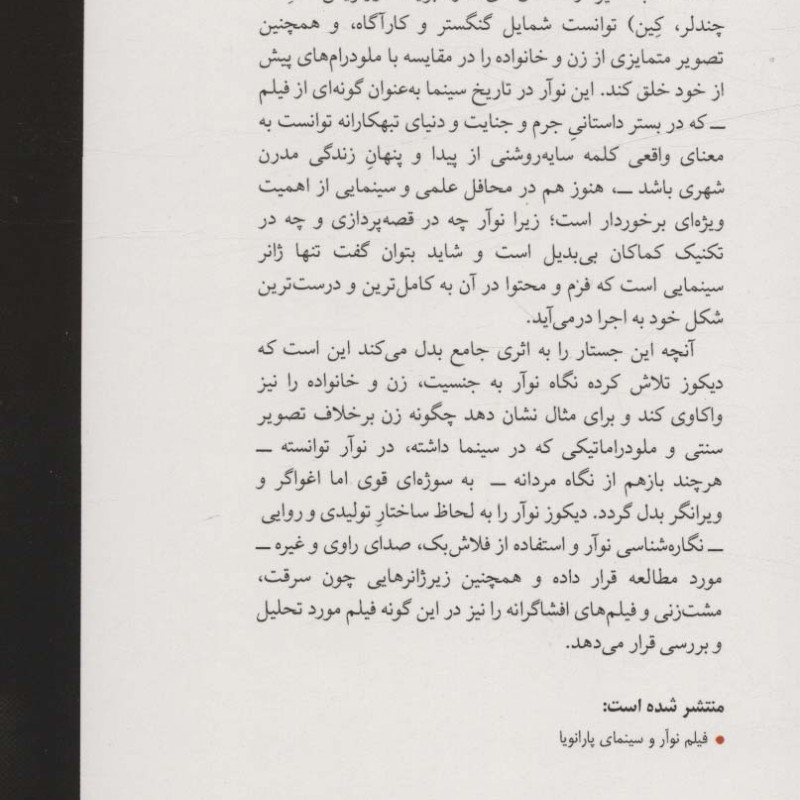 چندلر، کِین) توانست شمایل گنگستر و کارآگاه، و همچنین
تصویر متمایزی از زن و خانواده را در مقایسه با ملودرام‌های پیش
از خود خلق کند. این نوآر در تاریخ سینما به‌عنوان گونه‌ای از فیلم
ــ که در بستر داستانیِ جرم و جنایت و دنیای تبهکارانه توانست به
معنای واقعی کلمه سایه‌روشنی از پیدا و پنهانِ زندگی مدرن
شهری باشد ــ، هنوز هم در محافل علمی و سینمایی از اهمیت
ویژه‌ای برخوردار است؛ زیرا نوآر چه در قصه‌پردازی و چه در
تکنیک کماکان بی‌بدیل است و شاید بتوان گفت تنها ژانر
سینمایی است که فرم و محتوا در آن به کامل‌ترین و درست‌ترین
شکل خود به اجرا درمی‌آید.
آنچه این جستار را به اثری جامع بدل می‌کند این است که
دیکوز تلاش کرده نگاه نوآر به جنسیت، زن و خانواده را نیز
واکاوی کند و برای مثال نشان دهد چگونه زن برخلاف تصویر
سنتی و ملودراماتیکی که در سینما داشته، در نوآر توانسته ــ
هرچند بازهم از نگاه مردانه ــ به سوژه‌ای قوی اما اغواگر و
ویرانگر بدل گردد. دیکوز نوآر را به لحاظ ساختارِ تولیدی و روایی
ــ نگاره‌شناسی نوآر و استفاده از فلاش‌بک، صدای راوی و غیره ــ
مورد مطالعه قرار داده و همچنین زیرژانرهایی چون سرقت،
مشت‌زنی و فیلم‌های افشاگرانه را نیز در این گونه فیلم مورد تحلیل
و بررسی قرار می‌دهد.
منتشر شده است:
● فیلم نوآر و سینمای پارانویا